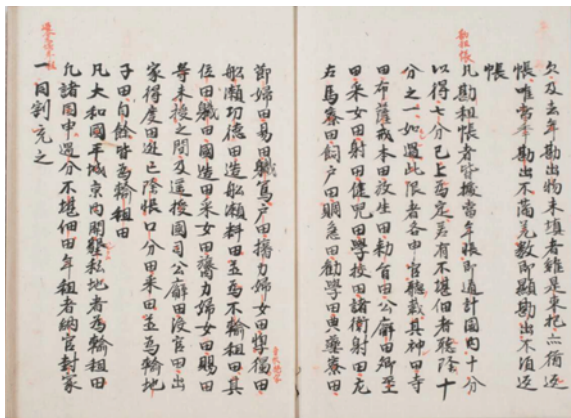 欠及去年勘出物未填者雖是束把亦猶返
帳唯當年勘出不蒲差數即顯勘出不須返
帳
凡勘租帳者皆據當年帳即通計國内十分
以得七分已上為定若有不堪佃者聴除十
分之一如過此限者各申官聴裁其神田寺
田布薩戒本田放生田勅旨田公廨田御巫
田采女田射田健児田學校田諸衛射田左
右馬寮田飼戸田賙急田勸學田典藥寮田
節婦田易田職寫戸田膂力婦女田惸獨田
船瀬功徳田造船瀬料田並為不輸租田其
位田職田國造田采女田膂力婦女田賜田
等未授之間及遥授國司公廨田没官田出
家得度田逃亡除帳口分田乗田並為輸地
子田自餘皆為輸租田
凡大和國平城京内開墾私地者為輸租田
凡諸國申過分不堪佃田年租者納官封家
一同割充之